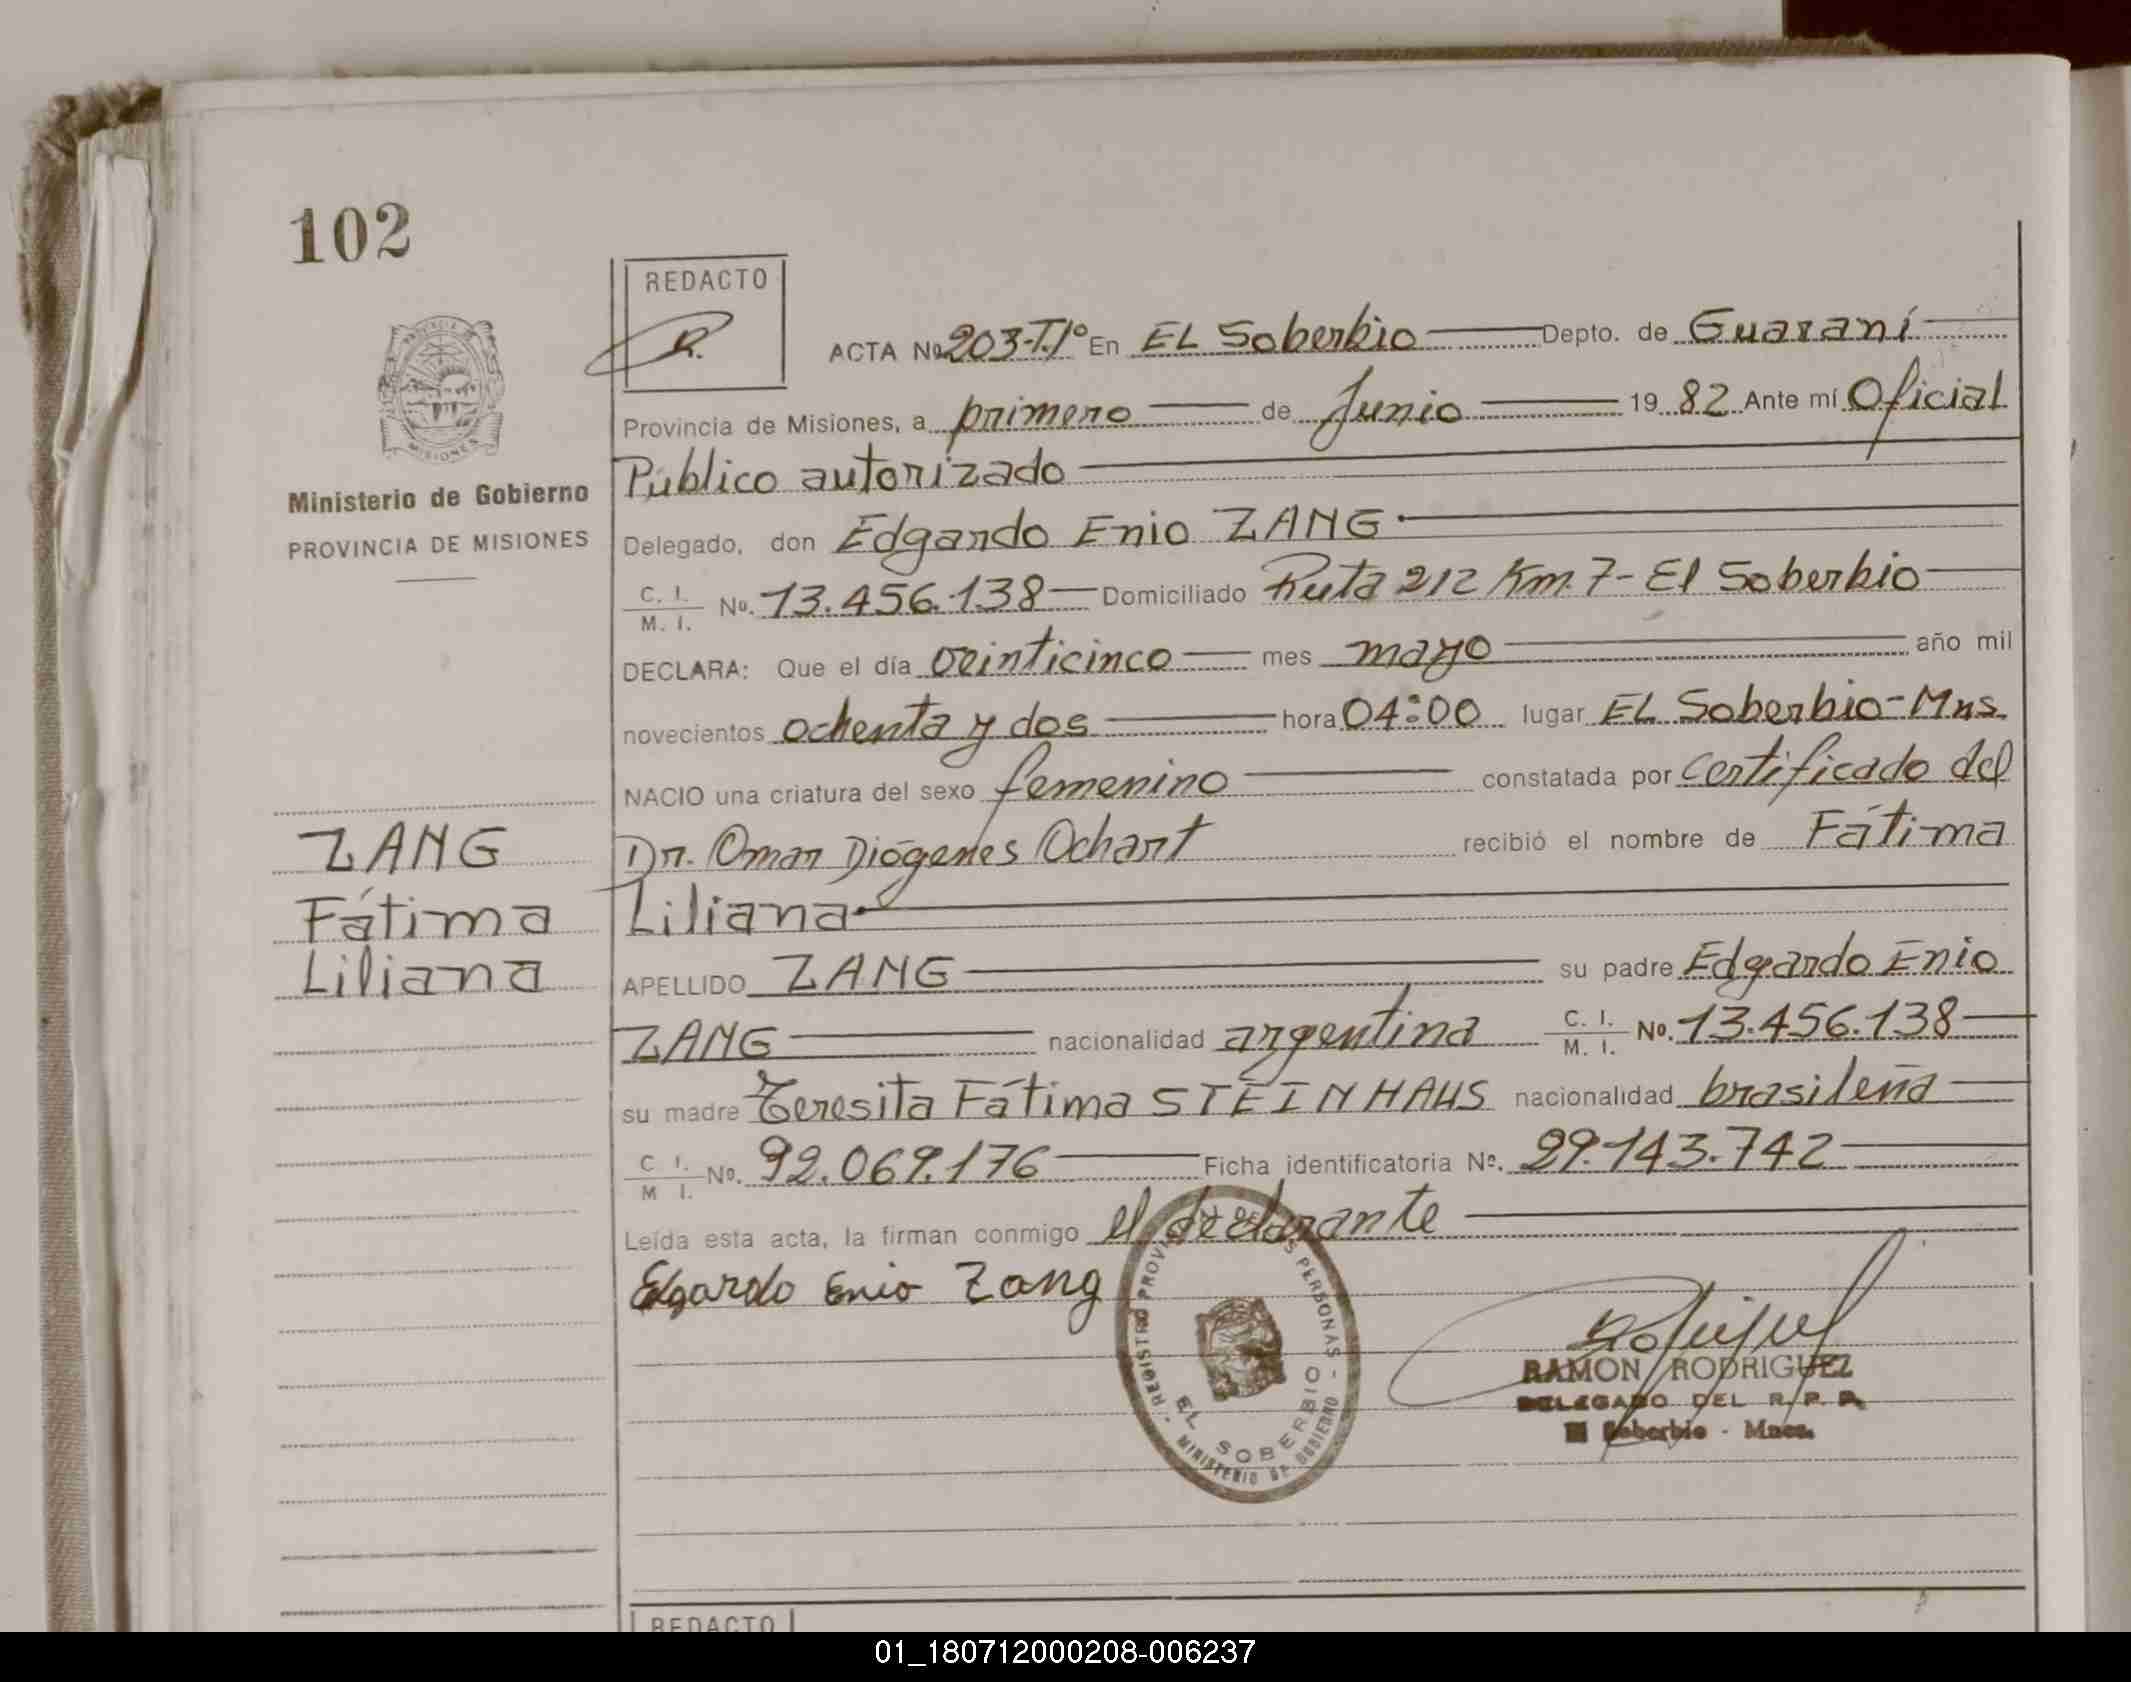 102
PROVINCIA DE
MISIONES
Ministerio de Gobierno
PROVINCIA DE MISIONES
ZANG
Fátima
Liliana
REDACTO
R.
ACTA No. 203-T.1º En EL Soberbio Depto. de Guaraní
Provincia de Misiones, a primero de Junio 1982 Ante mí Oficial
Público autorizado
Delegado, don Edgardo Enio ZANG
C. I. M. I. No. 13.456.138 Domiciliado Ruta 212 Km. 7- El Soberbio
DECLARA: Que el día veinticinco mes mayo año mil
novecientos ochenta y dos hora 04:00 lugar EL Soberbio-Mns.
NACIO una criatura del sexo femenino constatada por Certificado del
Dr. Omar Diógenes Ochart recibió el nombre de Fátima
Liliana
APELLIDO ZANG su padre Edgardo Enio
ZANG nacionalidad argentina C. I. M. I. No. 13.456.138
su madre Teresita Fátima STEINHAUS nacionalidad brasileña
C I. M I. No. 92.069.176 Ficha identificatoria Nº. 29.143.742
Leída esta acta, la firman conmigo el declarante
Edgardo Enio Zang
REGISTRO PROVINCIAL DE LAS PERSONAS - MINISTERIO DE GOBIERNO -
EL SOBERBIO
RAMON RODRIGUEZ
DELEGADO DEL R. P. P.
El Soberbio - Mnes.
REDACTO
01_180712000208-006237